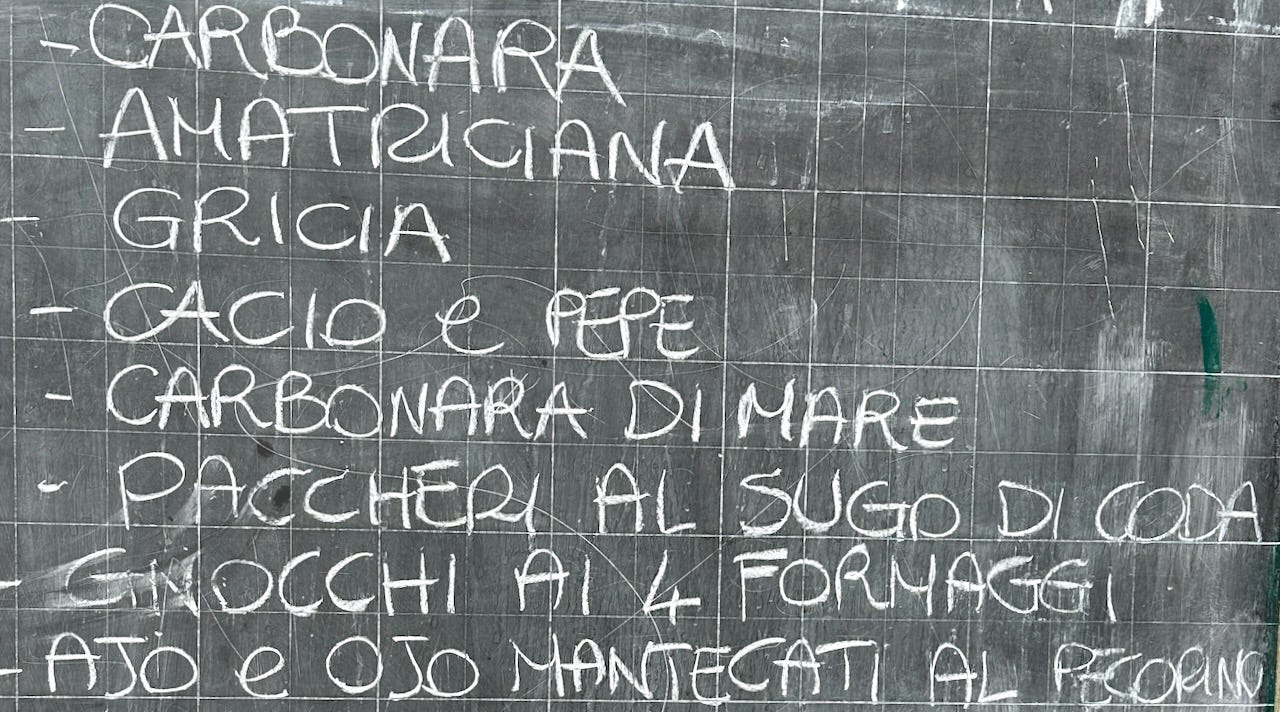 - CARBONARA
- AMATRICIANA
- GRICIA
- CACIO e PEPE
- CARBONARA DI MARE
- PACCHERI AL SUGO DI CODA
- GNOCCHI AI 4 FORMAGGI
- AJO e OJO MANTECATI AL PECORINO